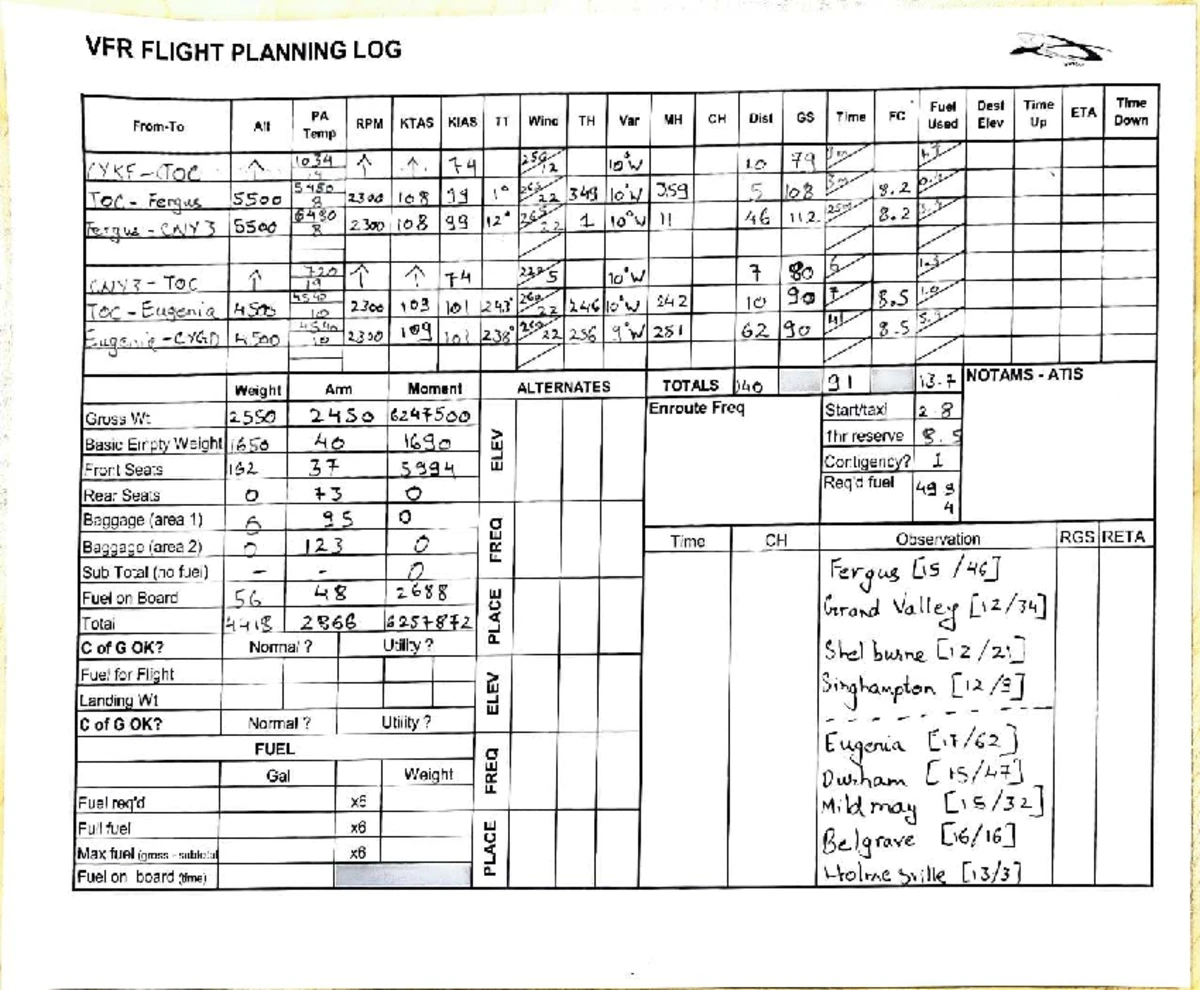 VFR FLIGHT PLANNING LOG
From-To Alt PA Temp RPM KTAS KIAS TT Wind TH Var MH CH Dist GS Time FC Fuel Used Dest Elev Time Up ETA Time Down
CYKF-TOC ↑ 1034 ↑ ↑ 74 10°W 10 79
TOC-Fergus 5500 5480 8 2300 108 99 1° 22 349 10°W 359 5 108 8.2
Fergus-CNY3 5500 6480 8 2300 108 99 12° 22 1 10°W 11 46 112 8.2
CNY3-TOC ↑ 720 19 ↑ ↑ 74 5 10°W 7 80 6 1.3
TOC-Eugenia 4500 4540 10 2300 103 101 243° 260 22 246 10°W 242 10 90 7 8.5 1.0
Eugenia-CYGD 4500 4540 10 2300 109 101 238° 260 22 256 9°W 281 62 90 41 8.5
Weight Arm Moment ALTERNATES TOTALS 140 91 13.7 NOTAMS - ATIS
Gross Wt 2550 2450 6247500
Basic Empty Weight 1650 40 1690
Front Seats 162 37 5994
Rear Seats 0 73 0
Baggage (area 1) 95 0
Baggage (area 2) 0 123 0
Sub Total (no fuel) - - 0
Fuel on Board 56 48 2688
Total 4418 2866 6257872
C of G OK? Normal ? Utility ?
Fuel for Flight
Landing Wt
C of G OK? Normal ? Utility ?
FUEL
Gal Weight
Fuel req'd x6
Full fuel x6
Max fuel (gross - subtotal x6
Fuel on board (time)
ELEV
FREQ
PLACE
ELEV
FREQ
PLACE
Enroute Freq
Start/taxi 2.8
1hr reserve 8.5
Contigency? 1
Req'd fuel 49 9
4
Time CH Observation RGS RETA
Fergus [15/46]
Grand Valley [12/34]
Shelburne [12/21]
Singhampton [12/9]
Eugenia [17/62]
Durham [15/47]
Mildmay [15/32]
Belgrave [16/16]
Holmesville [13/3]